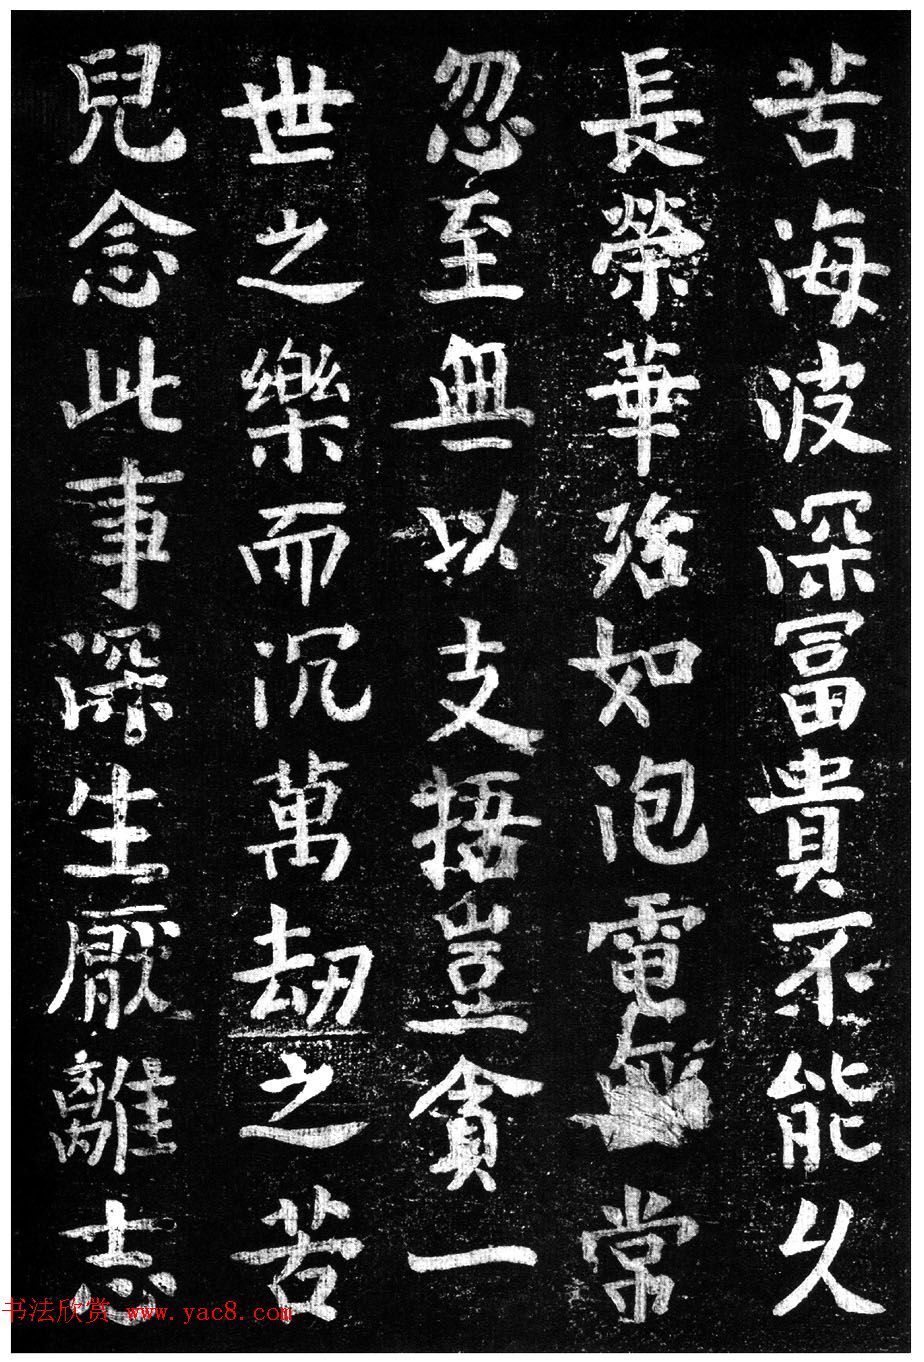 苦海波深富貴不能久
長榮華殆如泡電無常
忽至無以支捂豈貪一
世之樂而沉萬劫之苦
兒念此事深生厭離志
书法欣赏 www.yac8.com